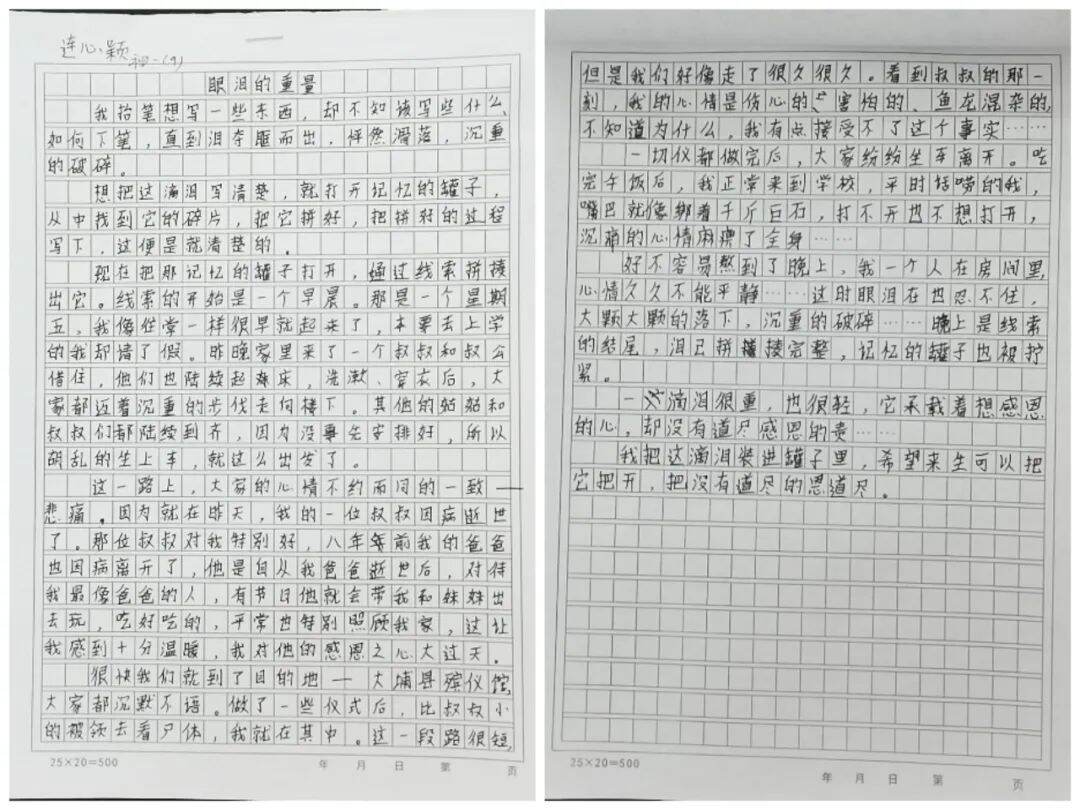 连心颖
初一(9)
眼泪的重量
我抬笔想写一些东西，却不知该写些什么，
如何下笔，直到泪夺眶而出，怦然滑落，沉重
的破碎。
想把这滴泪写清楚，就打开记忆的罐子，
从中找到它的碎片，把它拼好，把拼好的过程
写下，这便是就清楚的。
现在把那记忆的罐子打开，通过线索拼接
出它。线索的开始是一个早晨。那是一个星期
五，我像往常一样很早就起来了，本要去上学
的我却请了假。昨晚家里来了一个叔叔和叔公
借住，他们也陆续起床，洗漱、穿衣后，大
家都迈着沉重的步伐走向楼下。其他的姑姑和
叔叔们都陆续到齐，因为没事先安排好，所以
胡乱的坐上车，就这么出发了。
这一路上，大家的心情不约而同的一致——
悲痛。因为就在昨天，我的一位叔叔因病逝世
了。那位叔叔对我特别好，八年前我的爸爸
也因病离开了，他是自从我爸爸逝世后，对待
我最像爸爸的人，有节日他就会带我和妹妹出
去玩，吃好吃的，平常也特别照顾我家，这让
我感到十分温暖，我对他的感恩之心大过天。
很快我们就到了目的地——大埔县殡仪馆，
大家都沉默不语。做了一些仪式后，比叔叔小
的被领去看尸体，我就在其中。这一段路很短，
25×20=500 年 月 日 第 页
但是我们好像走了很久很久。看到叔叔的那一
刻，我的心情是伤心的、害怕的、鱼龙混杂的，
不知道为什么，我有点接受不了这个事实……
一切仪都做完后，大家纷纷坐车离开。吃
完午饭后，我正常来到学校，平时话唠的我，
嘴巴就像绑着千斤巨石，打不开也不想打开，
沉痛的心情麻痹了全身……
好不容易熬到了晚上，我一个人在房间里，
心情久久不能平静……这时眼泪在也忍不住，
大颗大颗的落下，沉重的破碎……晚上是线索
的结尾，泪已拼接完整，记忆的罐子也被拧
紧。
一滴泪很重，也很轻，它承载着想感恩
的心，却没有道尽感恩的责……
我把这滴泪装进罐子里，希望来生可以把
它把开，把没有道尽的恩道尽。
25×20=500 年 月 日 第 页